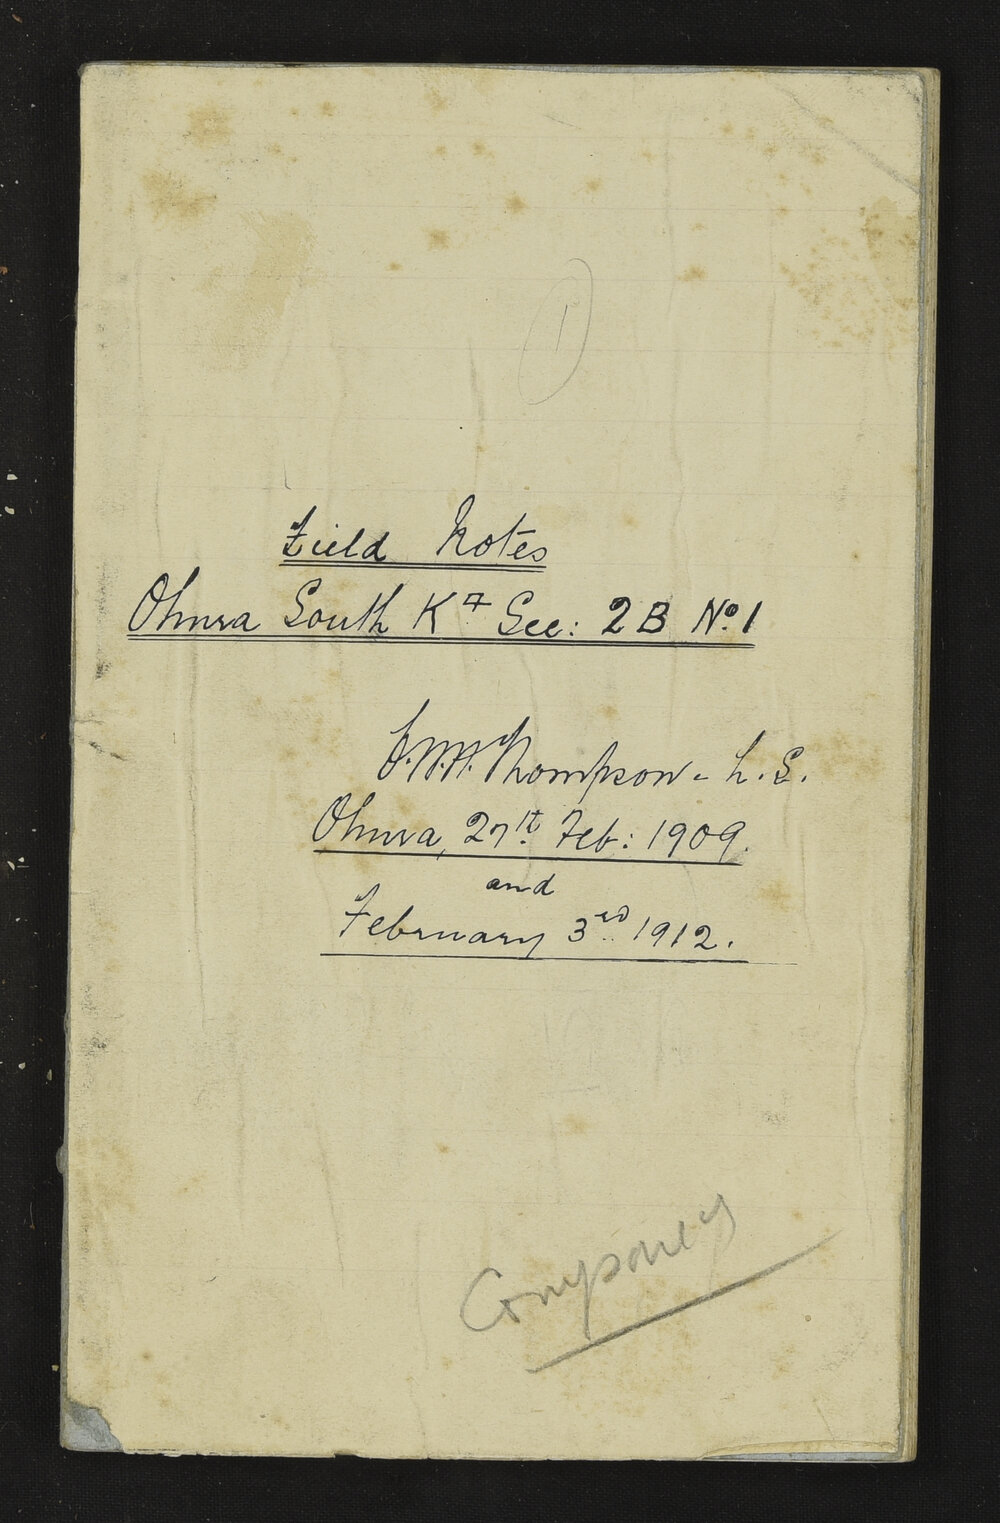 1
Field Notes
Ohura South K 7 Sec: 2B No. 1
Thompson - L.S.
Ohura, 27th Feb: 1909.
and
February 3rd 1912.
Company